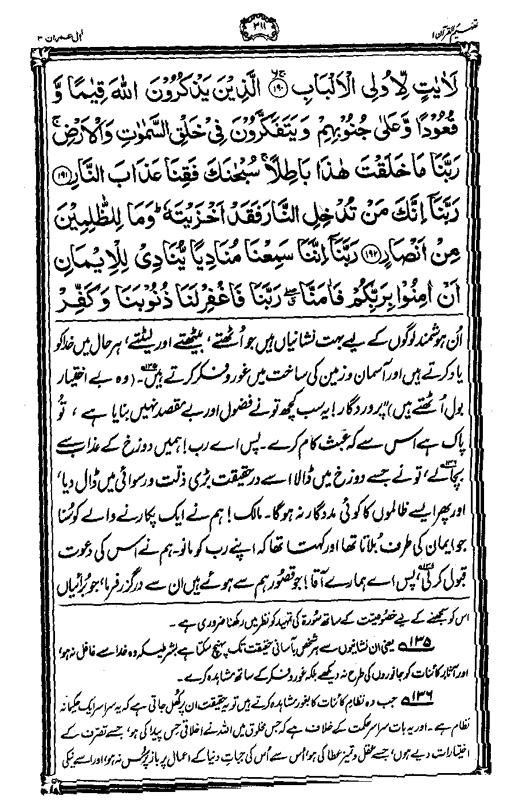 تفہیم القرآن ۱
۳۱۱
اٰل عمران ۳
لَاٰيٰتٍ لِّاُولِى الْاَلْبَابِ ۝۱۹۰ الَّذِيْنَ يَذْكُرُوْنَ اللّٰهَ قِيٰمًا وَّ
قُعُوْدًا وَّعَلٰى جُنُوْبِهِمْ وَيَتَفَكَّرُوْنَ فِىْ خَلْقِ السَّمٰوٰتِ وَالْاَرْضِ ۚ
رَبَّنَا مَا خَلَقْتَ هٰذَا بَاطِلًا ۚ سُبْحٰنَكَ فَقِنَا عَذَابَ النَّارِ ۝۱۹۱
رَبَّنَآ اِنَّكَ مَنْ تُدْخِلِ النَّارَ فَقَدْ اَخْزَيْتَهٗ ؕ وَمَا لِلظّٰلِمِيْنَ
مِنْ اَنْصَارٍ ۝۱۹۲ رَبَّنَآ اِنَّنَا سَمِعْنَا مُنَادِيًا يُّنَادِىْ لِلْاِيْمَانِ
اَنْ اٰمِنُوْا بِرَبِّكُمْ فَاٰمَنَّا ۖ رَبَّنَا فَاغْفِرْ لَنَا ذُنُوْبَنَا وَكَفِّرْ
اُن ہوشمند لوگوں کے لیے بہت نشانیاں ہیں جو اُٹھتے، بیٹھتے اور لیٹتے، ہر حال میں خدا کو
یاد کرتے ہیں اور آسمان و زمین کی ساخت میں غور و فکر کرتے ہیں۱۳۵۔ (وہ بے اختیار
بول اُٹھتے ہیں) "پروردگار! یہ سب کچھ تو نے فضول اور بے مقصد نہیں بنایا ہے، تُو
پاک ہے اس سے کہ عبث کام کرے۔ پس اے رب! ہمیں دوزخ کے عذاب سے
بچا لے۱۳۶، تو نے جسے دوزخ میں ڈالا اسے درحقیقت بڑی ذلت و رسوائی میں ڈال دیا،
اور پھر ایسے ظالموں کا کوئی مددگار نہ ہوگا۔ مالک! ہم نے ایک پکارنے والے کو سُنا
جو ایمان کی طرف بُلاتا تھا اور کہتا تھا کہ اپنے رب کو مانو۔ ہم نے اس کی دعوت
قبول کر لی۱۳۷، پس اے ہمارے آقا! جو قصور ہم سے ہوئے ہیں ان سے درگزر فرما، جو بُرائیاں
اس کو سمجھنے کے لیے خصوصیت کے ساتھ سُورۃ کی تمہید کو نظر میں رکھنا ضروری ہے۔
۱۳۵ یعنی ان نشانیوں سے ہر شخص بآسانی حقیقت تک پہنچ سکتا ہے بشرطیکہ وہ خدا سے غافل نہ ہو،
اور آثارِ کائنات کو جانوروں کی طرح نہ دیکھے بلکہ غور و فکر کے ساتھ مشاہدہ کرے۔
۱۳۶ جب وہ نظامِ کائنات کا بغور مشاہدہ کرتے ہیں تو یہ حقیقت ان پر کھل جاتی ہے کہ یہ سراسر ایک حکیمانہ
نظام ہے۔ اور یہ بات سراسر حکمت کے خلاف ہے کہ جس مخلوق میں اللہ نے اخلاقی حِس پیدا کی ہو، جسے تصرف کے
اختیارات دیے ہوں، جسے عقل و تمیز عطا کی ہو، اُس سے اُس کی حیاتِ دنیا کے اعمال پر باز پرس نہ ہو، اور اسے نیکی